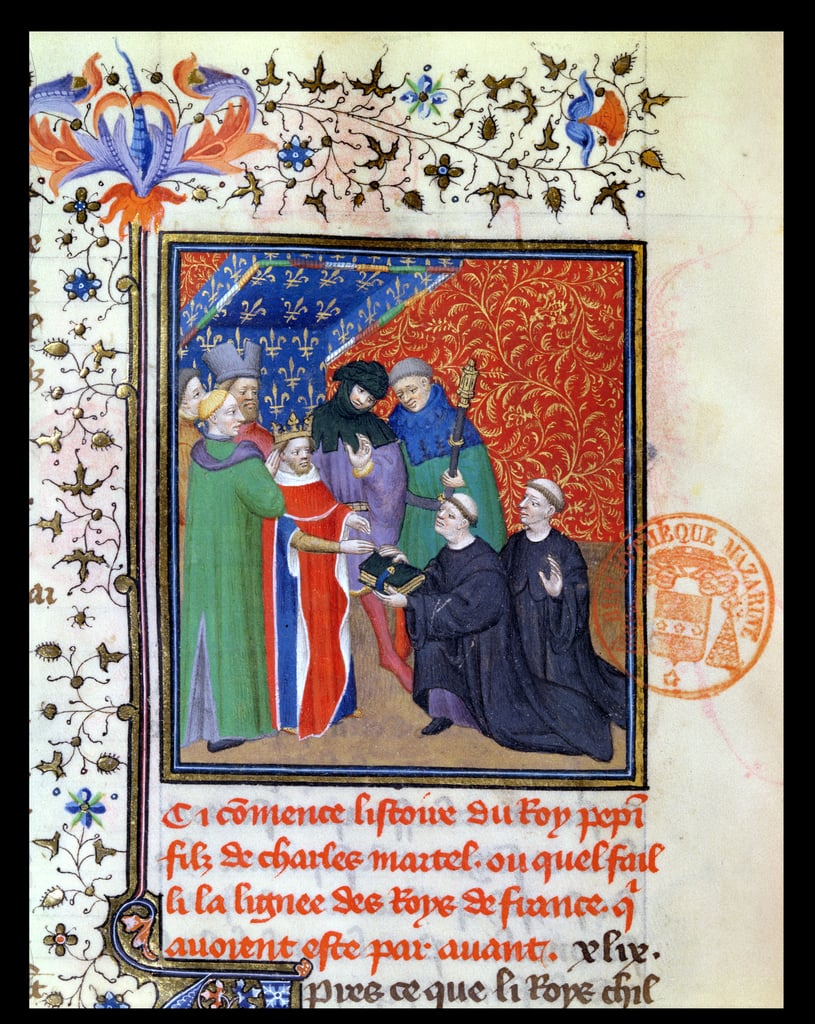 Ci cõmence listoire du Roy pepĩ
filz de charles martel. ou quel fail
li la lignee des Roys de france. q̃
auoient este par auant. xlix.
pres ce que li Roys chil
BIBLIOTHÈQUE MAZARINE